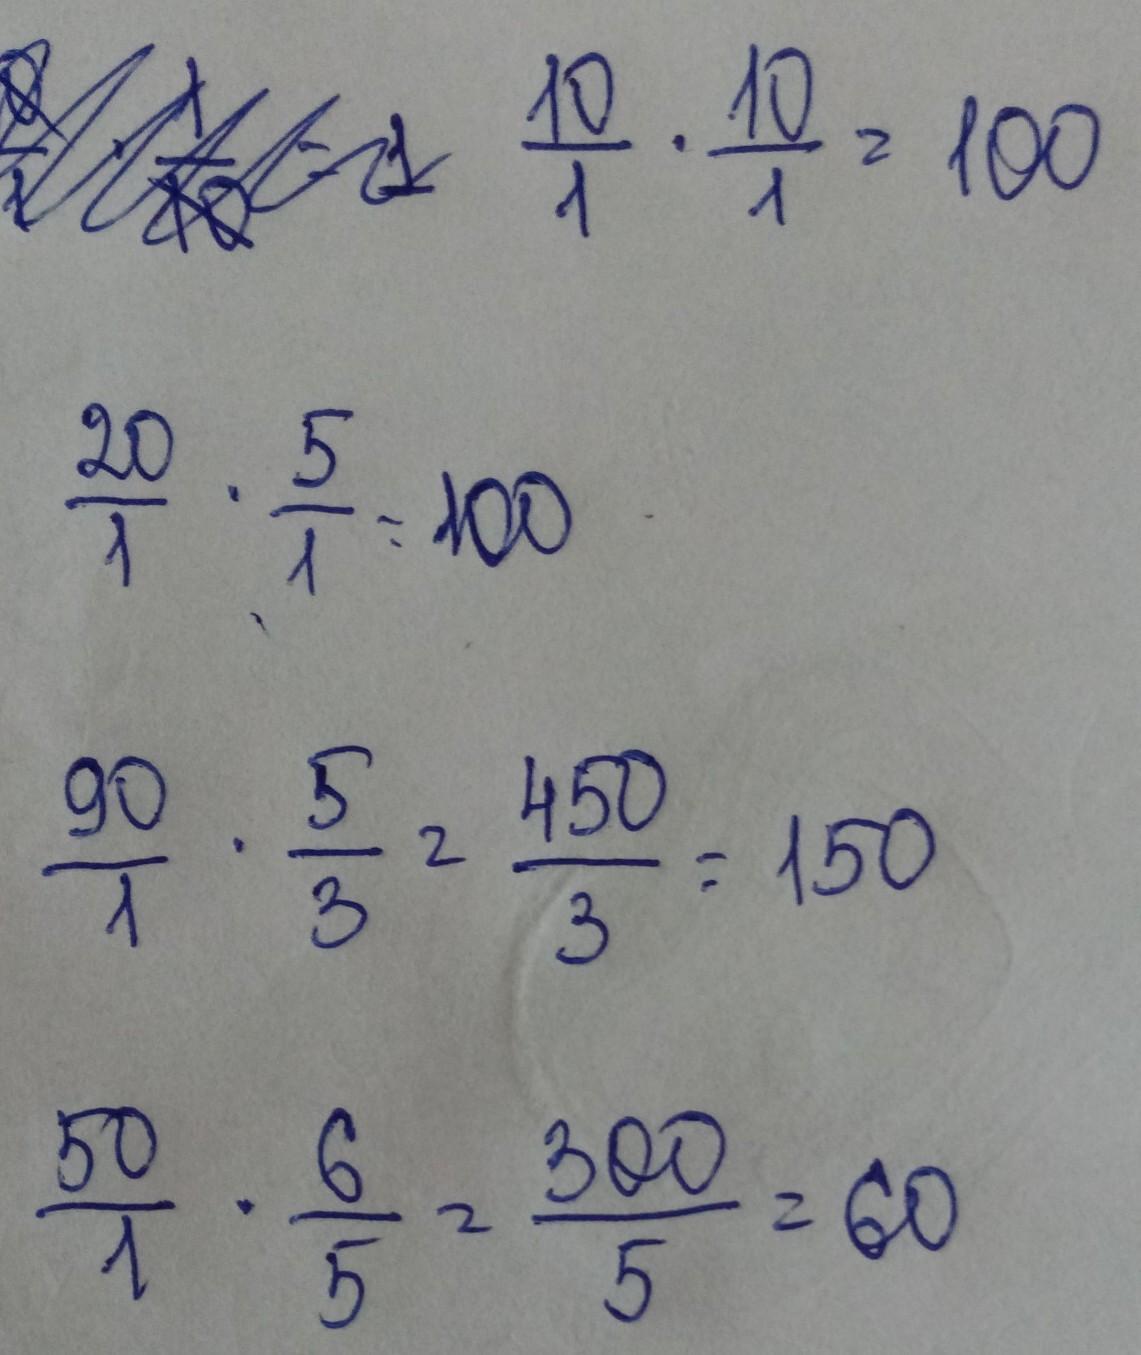 10/1 · 10/1 = 100
20/1 · 5/1 = 100
90/1 · 5/3 = 450/3 = 150
50/1 · 6/5 = 300/5 = 60